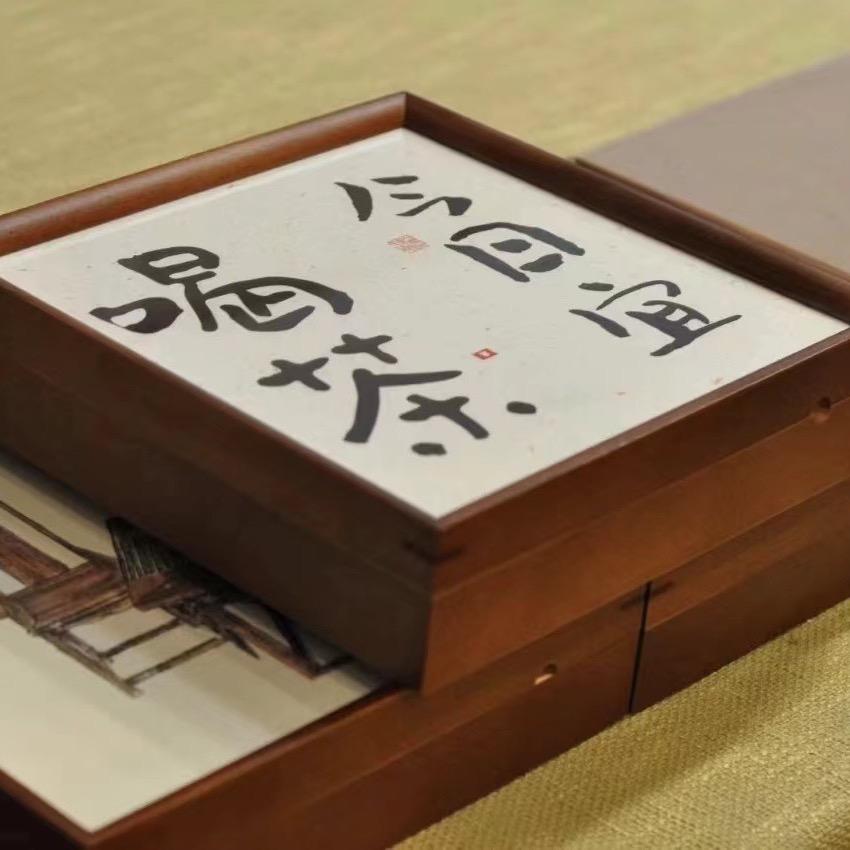 今日宜
喝茶